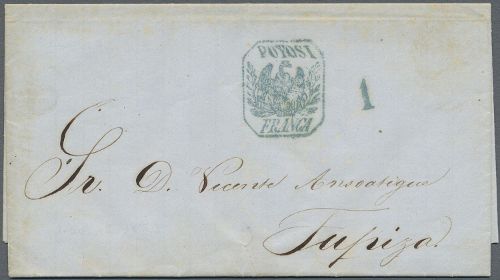 POTOSI
FRANCA
1
Sr. D. Vicente Ansoategui
Tupiza.